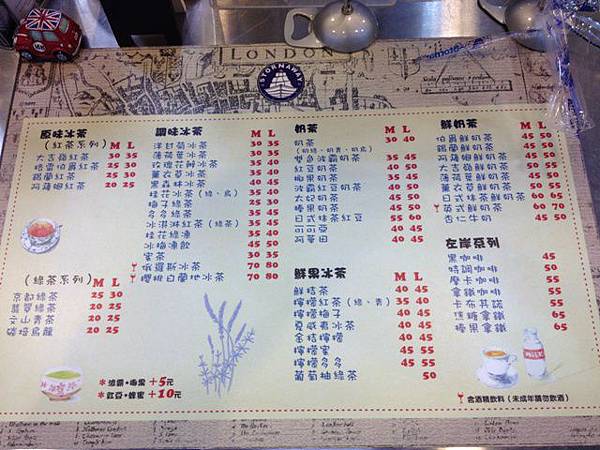 LONDON
STORNAWAY
原味冰茶
(紅茶系列) M L
大吉嶺紅茶 30 35
格雷伯爵紅茶 25 30
錫蘭紅茶 20 25
阿薩姆紅茶 20 25
(綠茶系列) M L
京都綠茶 25 30
翡翠綠茶 20 25
文山青茶 20 25
碳焙烏龍 20 25
調味冰茶 M L
洋封菊冰茶 30 35
薄荷冰茶 30 35
玫瑰花瓣冰茶 30 35
薰衣草冰茶 30 35
黑森林冰茶 40 45
桂花冰茶(綠、烏) 35 40
梅子綠茶 25 30
多多綠茶 35 45
冰淇淋紅茶(綠茶) 35 45
桂花綠凍 35 40
冰梅凍飲 45 50
蜜茶 30 35
俄羅斯冰茶 70 80
櫻桃白蘭地冰茶 70 80
*波霸•椰果 +5元
*紅豆•蜂蜜 +10元
奶茶 M L
奶茶 30 40
(奶綠、奶青、奶烏)
雙色波霸奶茶 35 45
紅豆奶茶 40 50
椰果奶茶 35 45
波霸紅豆奶茶 45 50
太妃奶茶 40 50
榛果奶茶 40 50
日式抹茶紅豆 55 60
可可亞 40 45
阿華田 40 45
鮮果冰茶 M L
鮮桔茶 40 45
檸檬紅茶(綠、青) 35 40
檸檬梅子 40 45
夏威夷冰茶 40 45
金桔檸檬 40 45
檸檬蜜 45 55
檸檬多多 45 55
葡萄柚綠茶 50
鮮奶茶 M L
伯爵鮮奶茶 45 50
錫蘭鮮奶茶 45 50
阿薩姆鮮奶茶 45 50
大吉嶺鮮奶茶 50 55
薄荷草鮮奶茶 50 55
薰衣草鮮奶茶 50 55
日式抹茶鮮奶茶 60 65
英式鮮奶茶 60 70
杏仁牛奶 45 50
左岸系列 M
黑咖啡 45
特調咖啡 50
摩卡咖啡 55
拿鐵咖啡 55
卡布其諾 55
焦糖拿鐵 65
榛果拿鐵 65
MILK
含酒精飲料(未成年請勿飲酒)